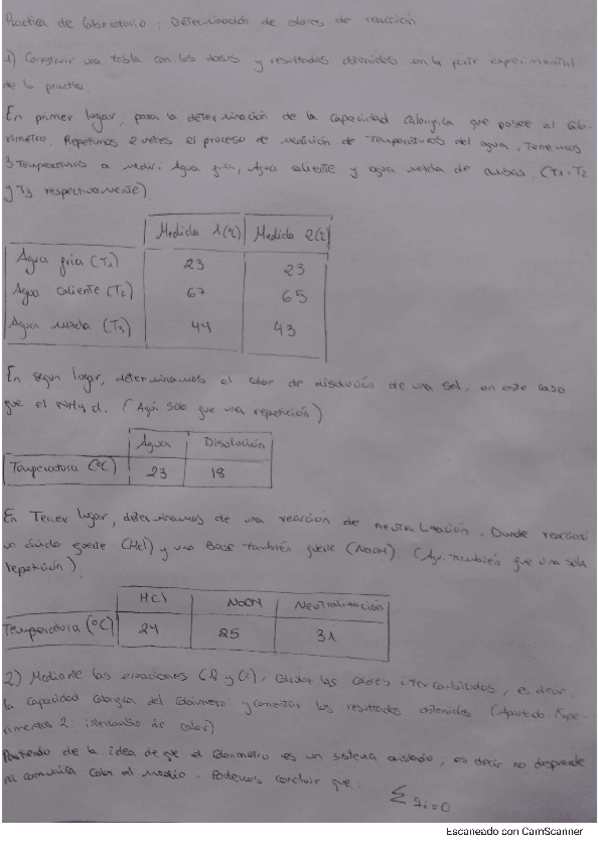 Practica de laboratorio: Determinación de calores de reacción
1) Construir una tabla con los datos y resultados obtenidos en la parte experimental
de la practica.
En primer lugar, para la determinación de la capacidad calorífica que posee el calo-
rímetro. Repetimos 2 veces el proceso de medición de temperaturas del agua, Tenemos
3 temperaturas a medir: Agua fría, Agua caliente y agua mezcla de ambas. (T1, T2
y T3 respectivamente)
Medida 1(º) Medida 2(º)
Agua fría (T1) 23 23
Agua caliente (T2) 67 65
Agua mezcla (T3) 44 43
En segun lugar, determinamos el calor de disolución de una sal, en este caso
fue el NH4Cl. (Aquí solo fue una repetición)
Agua Disolución
Temperatura (ºC) 23 18
En Tercer lugar, determinamos de una reacción de neutralización. Donde reaccionó
un ácido fuerte (HCl) y una Base también fuerte (NaOH) (Aqu también fue una sola
repetición)
HCl NaOH Neutralización
Temperatura (ºC) 24 25 31
2) Mediante las ecuaciones (1) y (2), calcular los calores intercambiados, es decir,
la capacidad calorífica del calorímetro y comentar los resultados obtenidos (Apartado Expe-
rimental 2: intercambio de calor)
Partiendo de la idea de que el calorímetro es un sistema aislado, es decir no desprende
ni comunica calor al medio. Podemos concluir que.
Σ qi = 0
Escaneado con CamScanner